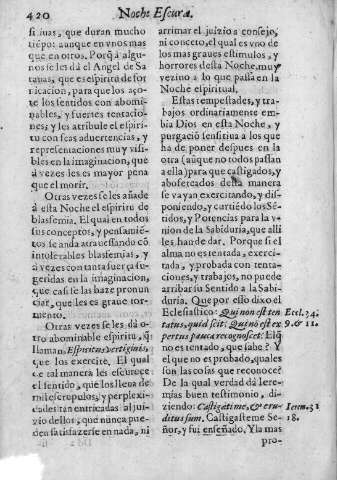 420 Noche Escura.
si juas, que duran mucho
tiēpo: aunque en vnos mas
que en otros. Porq̃ à algu-
nos se les dà el Angel de Sa-
tanas, que es espiritu de for
nicacion, para que los aço-
te los sentidos con abomi-
nables, y fuertes tentacio-
nes, y les atribule el espiri-
tu con feas advertencias, y
representaciones muy visi-
bles en la imaginacion, que
à vezes les es mayor pena
que el morir.
Otras vezes se les añade
à esta Noche el espiritu de
blasfemia. El qual en todos
sus conceptos, y pensamiē-
tos se anda atrauesando cō
intolerables blasfemias, y
à vezes con tanta fuerça su-
geridas en la imaginacion,
que casi se las haze pronun
ciar, que les es graue tor-
mento.
Otras vezes se les dà o-
tro abominable espiritu, q̃
llaman, Espiritus vertiginis,
para que los exercite. El qual
de tal manera les escurece
el sentido, que los llena de
mil escrupulos, y perplexi-
dades tan entricadas al jui-
zio dellos, que nunca pue-
den satisfazerse en nada, ni
arrimar el juizio a consejo,
ni conceto, el qual es vno de
los mas graues estimulos, y
horrores desta Noche, muy
vezino a lo que passa en la
Noche espiritual.
Estas tempestades, y tra-
bajos ordinariamente em-
bia Dios en esta Noche, y
purgació sensitiua a los que
ha de poner despues en la
otra (aũque no todos passan
a ella) para que castigados, y
abofeteados desta manera
se vayan exercitando, y dis-
poniendo, y curtiēdo los Sē-
tidos, y Potencias para la v-
nion de la Sabiduria, que alli
les han de dar. Porque si el
alma no es tentada, exercita-
da, y probada con tentacio-
nes, y trabajos, no puede
arribar su Sentido a la Sabi-
duria. Que por esso dixo el
Eclesiastico: Qui non est ten Eccl. 34.
tatus, quid scit: Qui nō est ex 9. & 11.
pertus pauca recognoscet: El q̃
no es tentado, que sabe? Y
el que no es probado, quales
son las cosas que reconoce?
De la qual verdad dà Iere-
mias buen testimonio, di-
ziendo: Castigasti me, & eru- Ierm. 31
ditus sum. Castigasteme Se- 18.
ñor, y fui enseñado. Y la mas
pro-